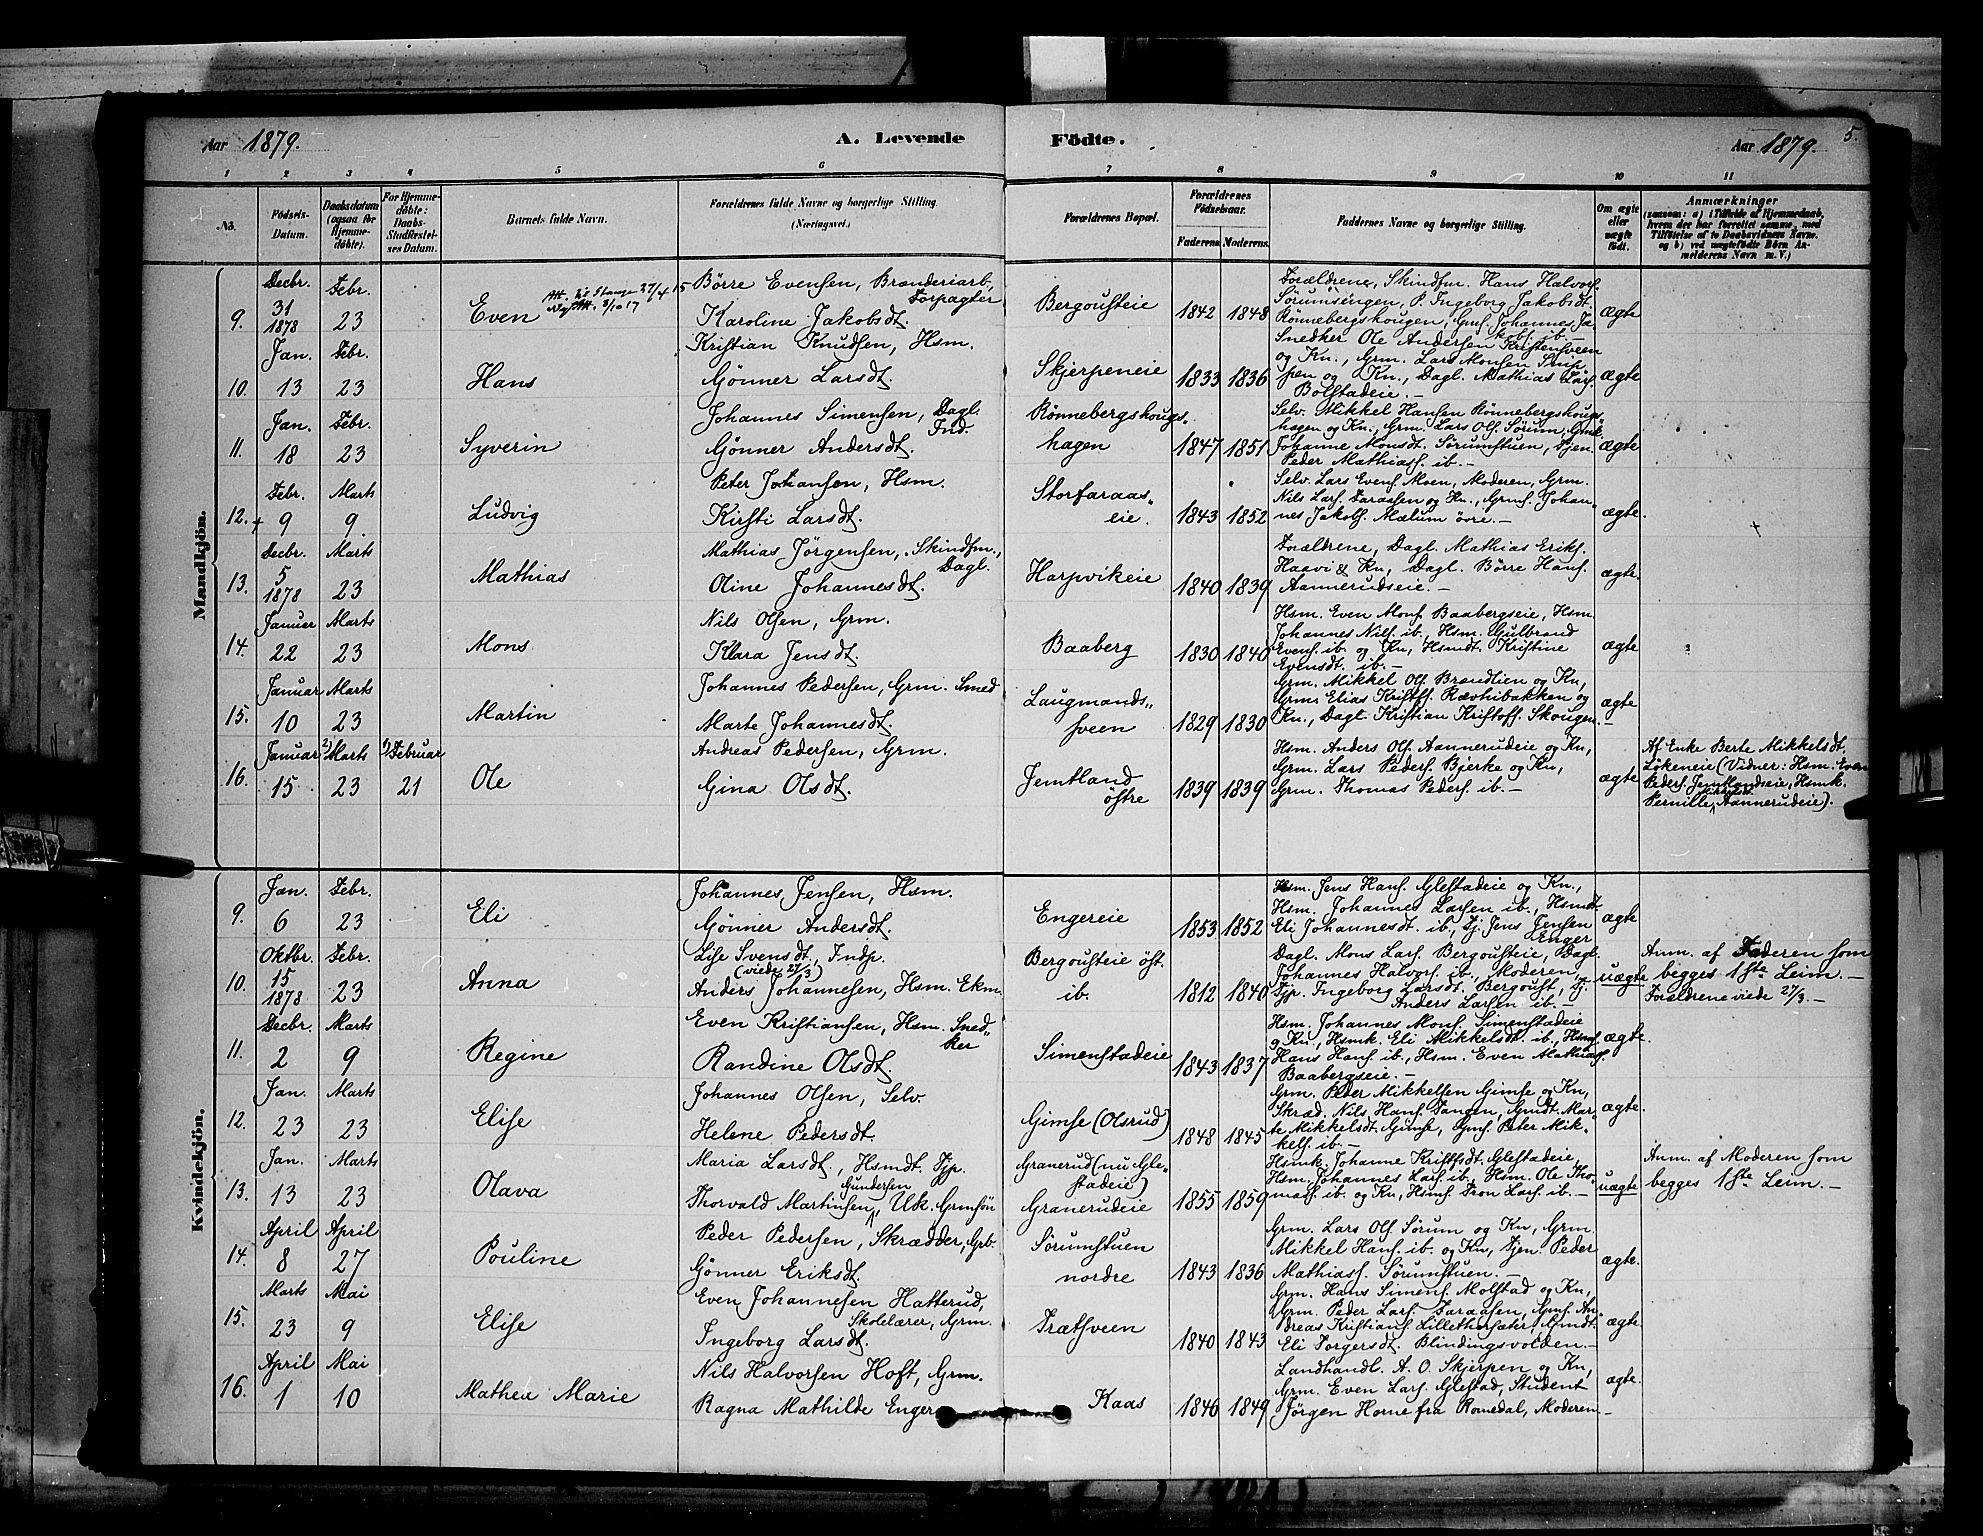 Aar 1879. A. Levende Födte. Aar 1879. 5.
1 2 3 4 5 6 7 8 9 10 11
No. Födsels-Datum. Daabsdatum (ogsaa for Hjemme-döbte). For Hjemme-döbte: Daabs-Stadfæstel-ses Datum. Barnets fulde Navn. Forældrenes fulde Navne og borgerlige Stilling. (Næringsvei.) Forældrenes Bopæl. Forældrenes Födselsaar. Faderens. Moderens. Faddernes Navne og borgerlige Stilling. Om ægte eller uægte födt. Anmærkninger (saasom: a) i Tilfælde af Hjemmedaab, hvem der har forrettet samme, med Tilföielse af to Daabsvidners Navne. og b) ved uægtefödte Börn Anmelderens Navn m. V.)
Mandkjön.
9. Decbr. 31 1878 Febr. 23 Even Att. Stange 27/4 15
Börre Evensen, Brænderiarb,
Forpagter
Karoline Jakobsdt.
Bergousteie 1842 1848
Forældrene, Skindfm. Hans Halvors.
Sörumsengen, P. Ingeborg Jakobsdt.
Rönnebergskougen, Gms. Johannes Ja-
kobs. ib. –
ægte
10. Jan. 13 Febr. 23 Hans
Kristian Knudsen, Hsm.
Gönner Larsdt.
Skjerpeneie 1833 1836
Snedker Ole Andersen Kristensveen
og Kn., Grm. Lars Monsen Snup-
pen og Kn., Dagl. Mathias Lars.
Bolstadeie. –
ægte
11. Jan. 18 Febr. 23 Syverin
Johannes Simensen, Dagl.
Ind.
Gönner Andersdt.
Rönnebergskougs-
hagen 1847 1851
Selv. Mikkel Hansen Rönnebergskougs
hagen og Kn., Grm. Lars Ols. Sörum, Gmk.
Johanne Monsdt. Sörumstuen, Tjen.
Peder Mathiass. ib. –
ægte
12. + Febr. 9 Marts 9 Ludvig
Peter Johansen, Hsm.
Kirsti Larsdt.
Storfaraas-
eie. 1843 1852
Selv. Lars Evens. Moen, Moderen, Grm.
Nils Lars. Faraasen og Kn., Grms. Johan-
nes Jakobs. Mælum övre. –
ægte. +
13. Decbr. 5 1878 Marts 23 Mathias
Mathias Jörgensen, Skindfm.,
Dagl.
Oline Johannesdt.
Harpvikeie 1840 1839
Forældrene, Dagl. Mathias Eriks.
Haavi & Kn, Dagl. Börre Hans.
Aannerudseie. –
ægte.
14. Januar 22 Marts 23 Mons
Nils Olsen, Grm.
Klara Jensdt.
Baaberg 1830 1840
Hsm. Even Mons. Baabergseie, Hsm.
Johannes Nils. ib., Hsm. Gulbrand
Evens. ib. og Kn, Hsmdt. Kristine
Evensdt. ib. –
ægte
15. Januar 10 Marts 23 Martin
Johannes Pedersen, Grm. Smed
Marte Johannesdt.
Laugmands-
sveen 1829 1830
Grm. Mikkel Ols. Brændlien og Kn,
Grms Elias Kristoffs. Rævhibakken og
Kn., Dagl. Kristian Kristoff. Skougen. –
ægte
16. Januar 15 2) Marts 23 1) Februar 21 Ole
Andreas Pedersen, Grm.
Gina Olsdt.
Jemtland
östre 1839 1839
Hsm. Anders Ols. Aannerudeie og Kn,
Grm. Lars Peders. Bjerke og Kn,
Grm. Thomas Peders. ib. –
ægte
Af Enke Berte Mikkelsdt.
Lökeneie (Vidner: Hsm. Even
Peders. Jemtlandseie, Hsmk.
Pernille Aannerudeie).
Kvindekjön.
9. Jan. 6 Febr. 23 Eli
Johannes Jensen, Hsm.
Gönner Andersdt.
Engereie 1853 1852
Hsm. Jens Hans. Glestadeie og Kn.,
Hsm. Johannes Larsen ib., Hsmdt
Eli Johannesdt. ib., Tj. Jens Jensen
Enger
ægte
10. Oktbr. 15 1878 Febr. 23 Anna
Lise Svensdt., Indp.
(viede 27/3)
Anders Johannesen, Hsm. Ekm.
Bergousteie öst.
ib. 1812 1840
Dagl. Mons Lars. Bergousteie, Dagl.
Johannes Halvors. ib., Moderen,
Tjp. Ingeborg Larsdt. Bergoust, Tj.
Anders Larsen ib. –
uægte
Anm. af Faderen som
begges 1ste Leim. –
Forældrene viede 27/3. –
11. Decbr. 2 Marts 9 Regine
Even Kristiansen, Hsm. Sned-
ker
Randine Olsdt.
Simenstadeie 1843 1837
Hsm. Johannes Mons. Simenstadeie
og Kn., Hsmk. Eli Mikkelsdt. ib., Hsms.
Hans Hans. ib., Hsm. Even Mathiass.
Baabergseie. –
ægte.
12. Jan. 23 Marts 23 Elise
Johannes Olsen, Selv.
Helene Pedersdt.
Gimse (Olsrud) 1848 1845
Grm. Peder Mikkelsen Gimse og Kn,
Skræd. Nils Hans. Tangen, Gmdt. Mar-
te Mikkelsdt. Gimse, Gms. Peter Mik-
kels. ib. –
ægte.
13. Jan. 13 Marts 23 Olava
Maria Larsdt., Hsmdt. Tjp.
Gundersen
Thorvald Martinsen, Uk. Grmsön
Granerud (nu Gle-
stadeie)
Granerudeie 1855 1859
Hsmk. Johanne Kristfsdt. Glestadeie,
Hsm. Johannes Lars. ib., Hsm. Ole Tho-
mass. ib. og Kn, Hsms. Tron Lars. ib. –
uægte
Anm. af Moderen som
begges 1ste Leim. –
14. April 8 April 27 Pouline
Peder Pedersen, Skrædder, Grb.
Gönner Eriksdt.
Sörumstuen
nordre 1843 1836
Grm. Lars Ols. Sörum og Kn, Grm.
Mikkel Hans. ib. og Kn, Tjen. Peder
Mathiass. Sörumstuen. –
ægte.
15. Marts 23 Mai 9 Elise
Even Johannesen Hatterud,
Skolelærer, Grm.
Ingeborg Larsdt.
Trætsveen 1840 1843
Grm. Hans Simens. Molstad og Kn,
Grm. Peder Lars. Faraasen, Gms. An-
dreas Kristians. Lillethorsæter, Gmdt.
Eli Torgersdt. Blindingsvolden. –
ægte
16. April 1 Mai 10 Mathea Marie
Nils Halvorsen Hoft, Grm.
Ragna Mathilde Enger
Kaas 1846 1849
Landhandl. A. O. Skjerpen og Kn,
Grm. Even Lars. Glestad, Student
Jörgen Horne fra Romedal, Moderen –
ægte.